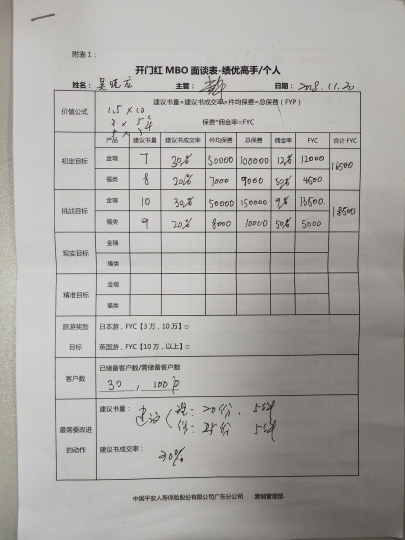 附表1:
开门红 MBO 面谈表-绩优高手/个人
姓名: 主管: 日期: 2018.11.20
价值公式 建议书量×建议书成交率×件均保费=总保费(FYP)
保费*佣金率=FYC
1.5 × 10
产品 建议书量 建议书成交率 件均保费 总保费 佣金率 FYC 合计 FYC
初定目标 金瑞 7 30% 50000 100000 12% 12000 16500
福类 8 20% 7000 9000 50% 4500
挑战目标 金瑞 10 30% 50000 150000 9% 13500 18500
福类 9 20% 8000 10000 50% 5000
现实目标 金瑞
福类
精准目标 金瑞
福类
旅游奖励 日本游,FYC【3万,10万】□
目标 英国游,FYC【10万,以上】□
客户数 已储备客户数/需储备客户数
30 , 100户
最需要改进 建议书量: 20份. 5
的动作 25份 5
建议书成交率:
30%
中国平安人寿保险股份有限公司广东分公司 营销管理部